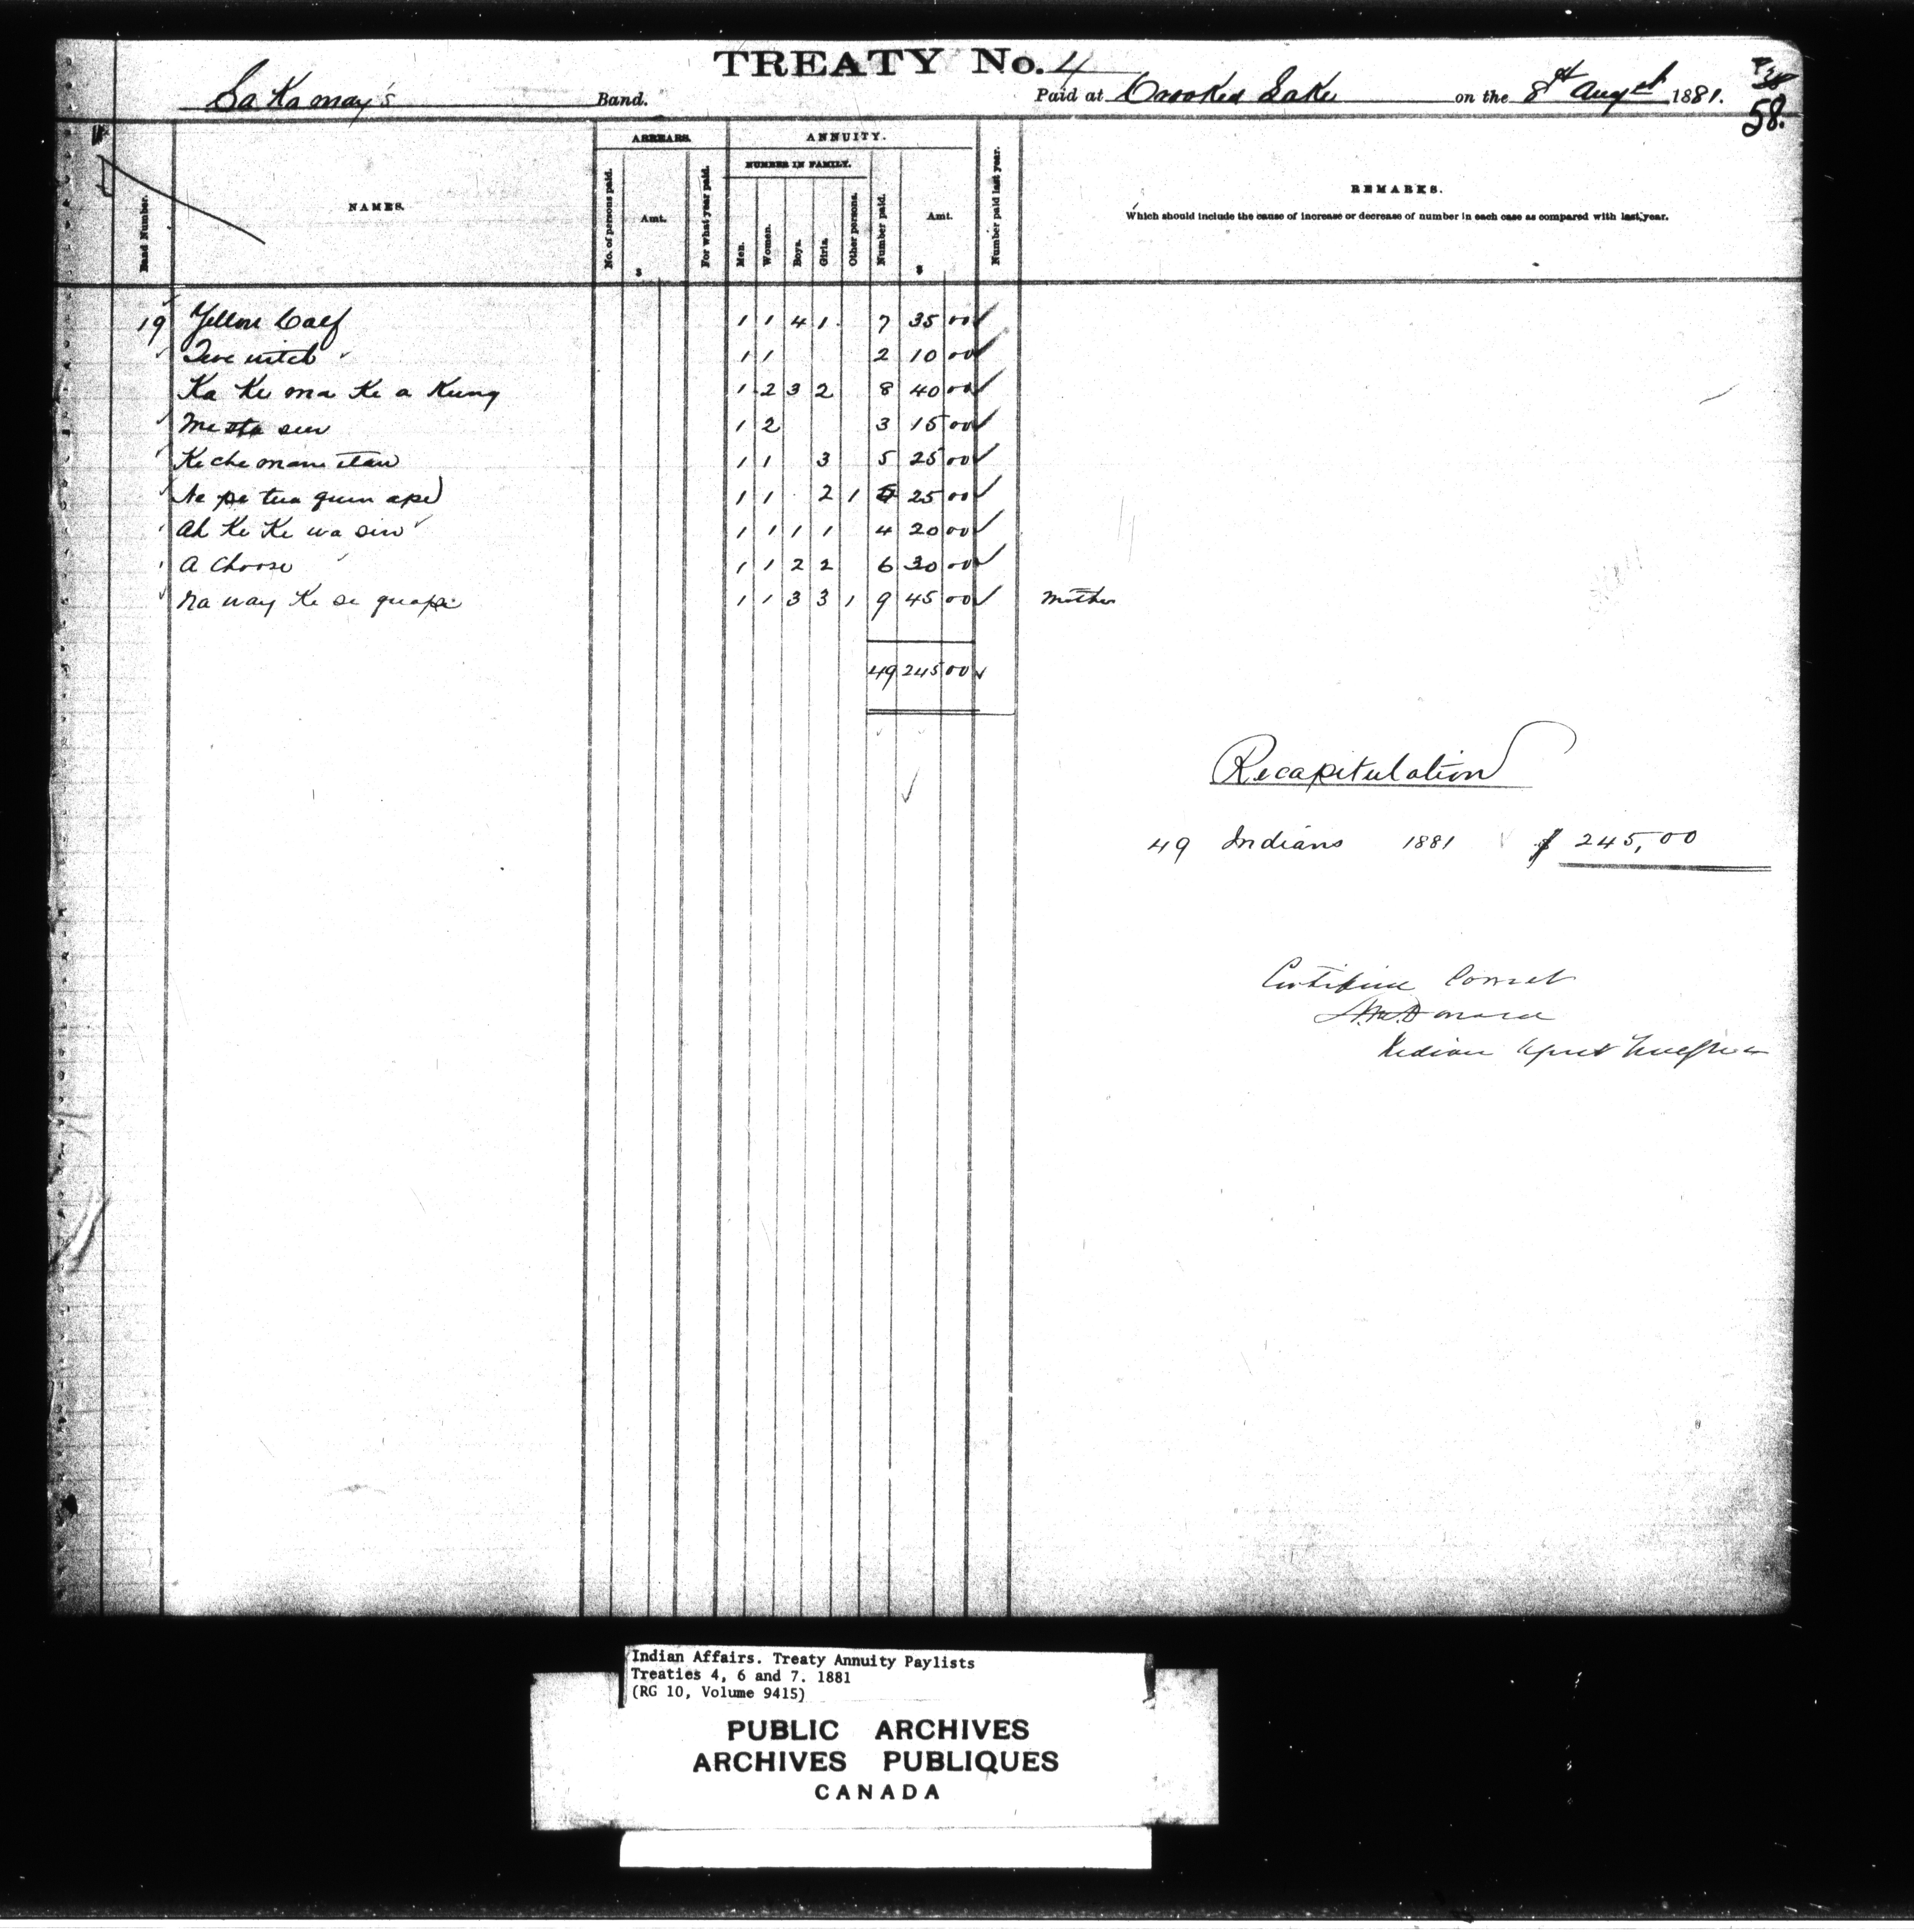 TREATY No. 4
Sa Ka may's Band. Paid at Crooked Lake on the 8th Augst 1881.
58.
ARREARS. ANNUITY.
NUMBER IN FAMILY.
Band Number. NAMES. No. of persons paid. Amt. $ For what year paid. Men. Women. Boys. Girls. Other persons. Number paid. Amt. $ Number paid last year. REMARKS.
Which should include the cause of increase or decrease of number in each case as compared with last year.
19 Yellow Calf 1 1 4 1 7 35 00
1 1 2 10 00
Ka Ke ma Ke a Kung 1 2 3 2 8 40 00
Me sta sew 1 2 3 15 00
Ke che mani taw 1 1 3 5 25 00
Ne pe tua quin ape 1 1 2 1 5 25 00
Ah Ke Ke wa sin 1 1 1 1 4 20 00
A Choose 1 1 2 2 6 30 00
Na way Ke se quape 1 1 3 3 1 9 45 00 Mother
49 245 00
Recapitulation
49 Indians 1881 $ 245,00
Certified Correct
A. McDonald
Indian Agent
Indian Affairs. Treaty Annuity Paylists
Treaties 4, 6 and 7. 1881
(RG 10, Volume 9415)
PUBLIC ARCHIVES
ARCHIVES PUBLIQUES
CANADA